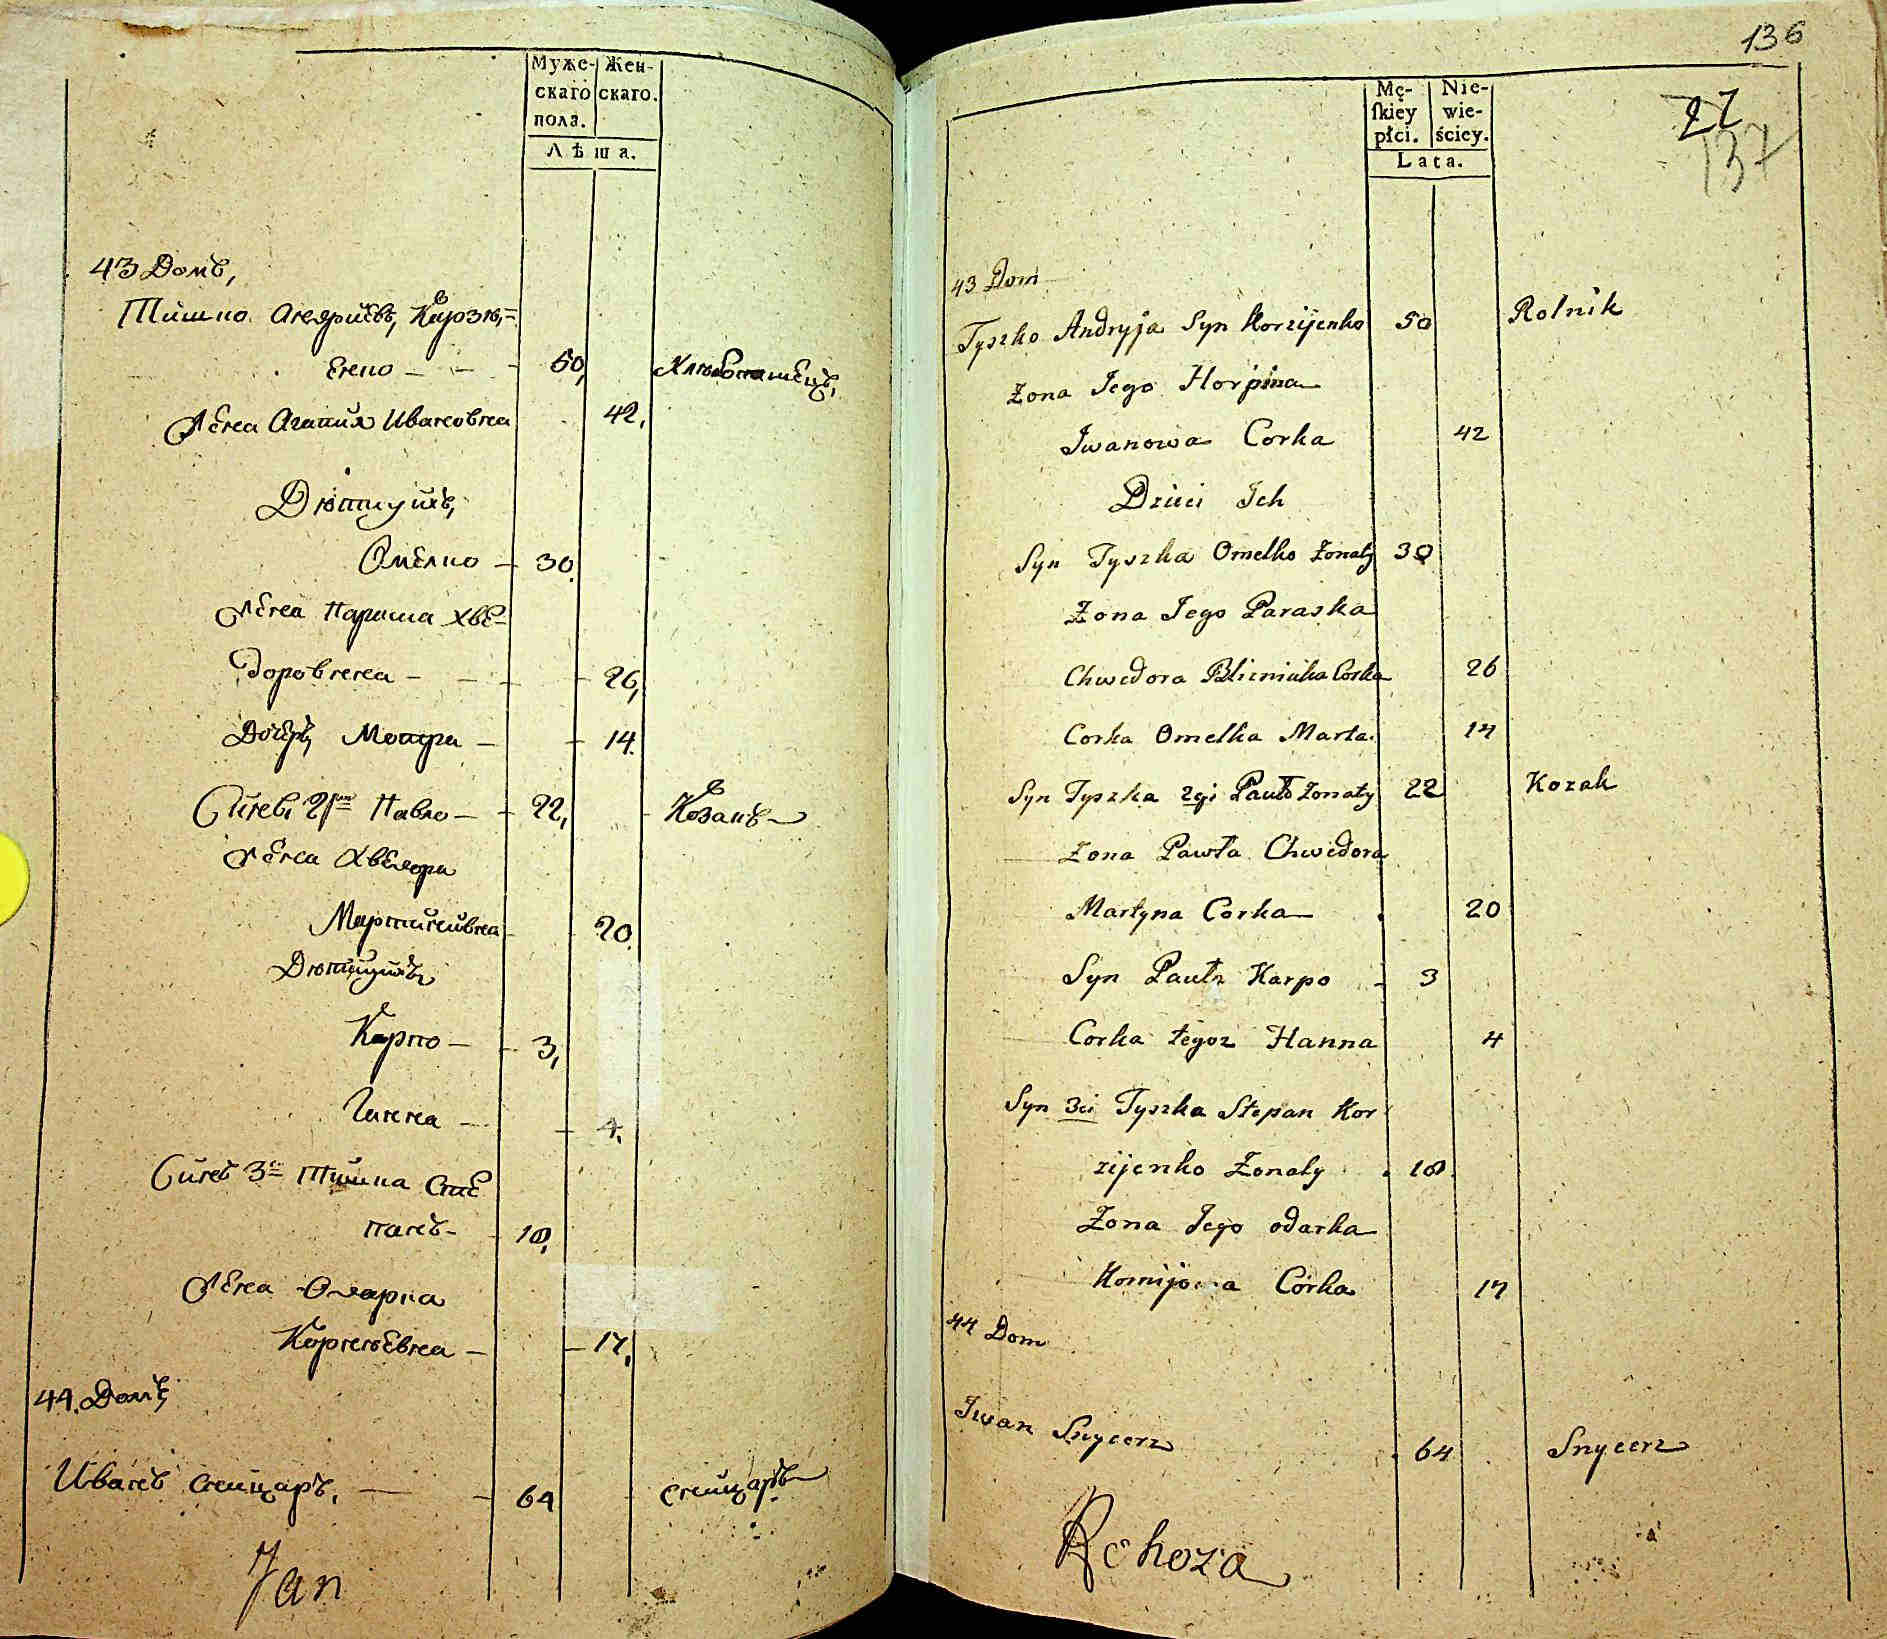 Муже- Жен-
скаго скаго.
пола.
Лѣта.
43 Домъ,
Тишко Андріевъ, Корзіѣ=
енко - - - 50, Хлѣбопашецъ,
Жена Агапия Ивановна 42,
Дѣти ихъ,
Омелко - 30
Жена Параска Хве=
доровнна - - - 26,
Дочерь, Мотря - 14
Сынъ 2й Павло - 22, Козакъ
Жена Хведора
Мартиновна 20
Дѣти ихъ
Карпо - 3,
Ганна - 4,
Синъ 3й Тишка Сте
панъ - 18,
Жена Одарка
Корніевна - 17,
44. Домъ
Иванъ Сницаръ, - 64 Сницаръ
Jan
136
27
137
Mę- Nie-
skiey wie-
płci. ściey.
Lata.
43 Dom
Tyszko Andryja Syn Korzijenko 50 Rolnik
Żona Jego Horpina
Iwanowa Corka 42
Dzieci Ich
Syn Tyszka Omelko Żonaty 30
Żona Jego Paraska
Chwedora Blizniuka Corka 26
Corka Omelka Marta 14
Syn Tyszka 2gi Pawło Żonaty 22 Kozak
Żona Pawła Chwedora
Martyna Corka 20
Syn Pawła Karpo - 3
Corka tegoz Hanna 4
Syn 3ci Tyszka Stepan Kor
zijenko Żonaty 18
Żona Jego Odarka
Kornijowa Corka 17
44 Dom
Iwan Snycerz 64 Snycerz
Rehoza